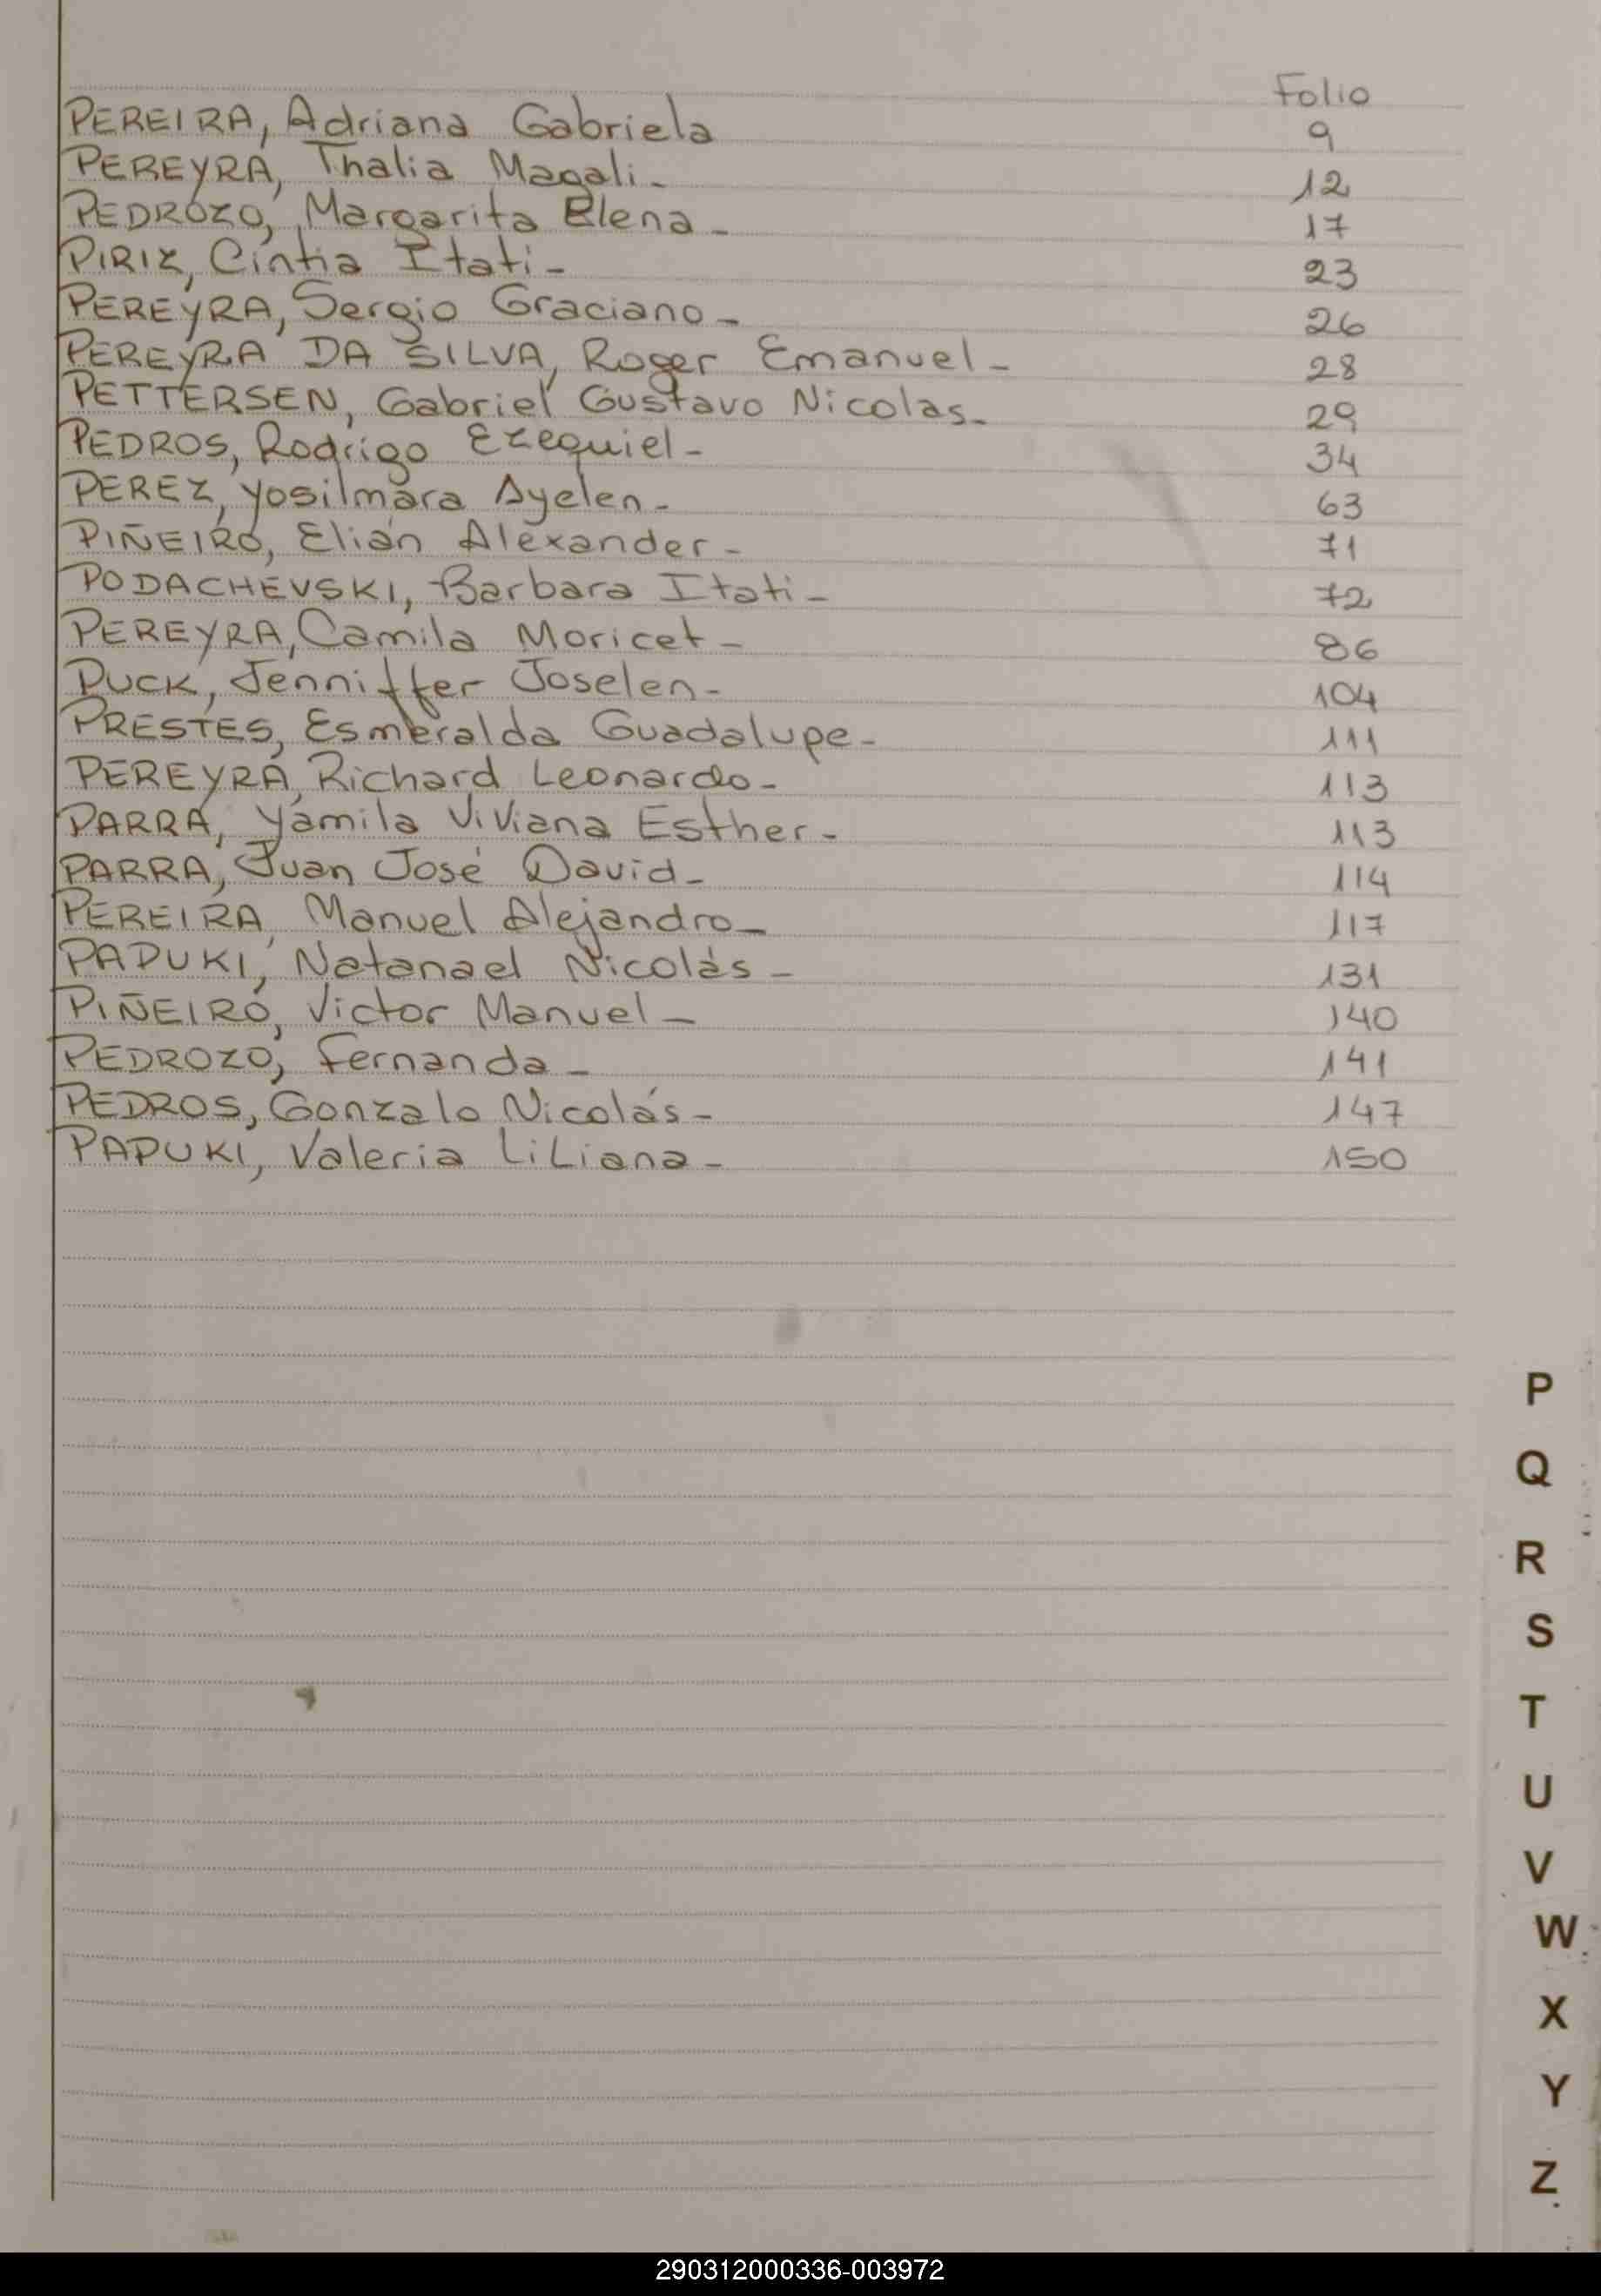 Folio
PEREIRA, Adriana Gabriela 9
PEREYRA, Thalia Magali - 12
PEDROZO, Margarita Elena - 17
PIRIZ, Cintia Itati - 23
PEREYRA, Sergio Graciano - 26
PEREYRA DA SILVA, Roger Emanuel - 28
PETTERSEN, Gabriel Gustavo Nicolas - 29
PEDROS, Rodrigo Ezequiel - 34
PEREZ, Yosilmara Ayelen - 63
PIÑEIRO, Elián Alexander - 71
PODACHEVSKI, Barbara Itati - 72
PEREYRA, Camila Moricet - 86
PUCK, Jenniffer Joselen - 104
PRESTES, Esmeralda Guadalupe - 111
PEREYRA, Richard Leonardo - 113
PARRA, Yamila Viviana Esther - 113
PARRA, Juan José David - 114
PEREIRA, Manuel Alejandro - 117
PAPUKI, Natanael Nicolás - 131
PIÑEIRO, Victor Manuel - 140
PEDROZO, Fernanda - 141
PEDROS, Gonzalo Nicolás - 147
PAPUKI, Valeria Liliana - 150
P
Q
R
S
T
U
V
W
X
Y
Z
290312000336-003972